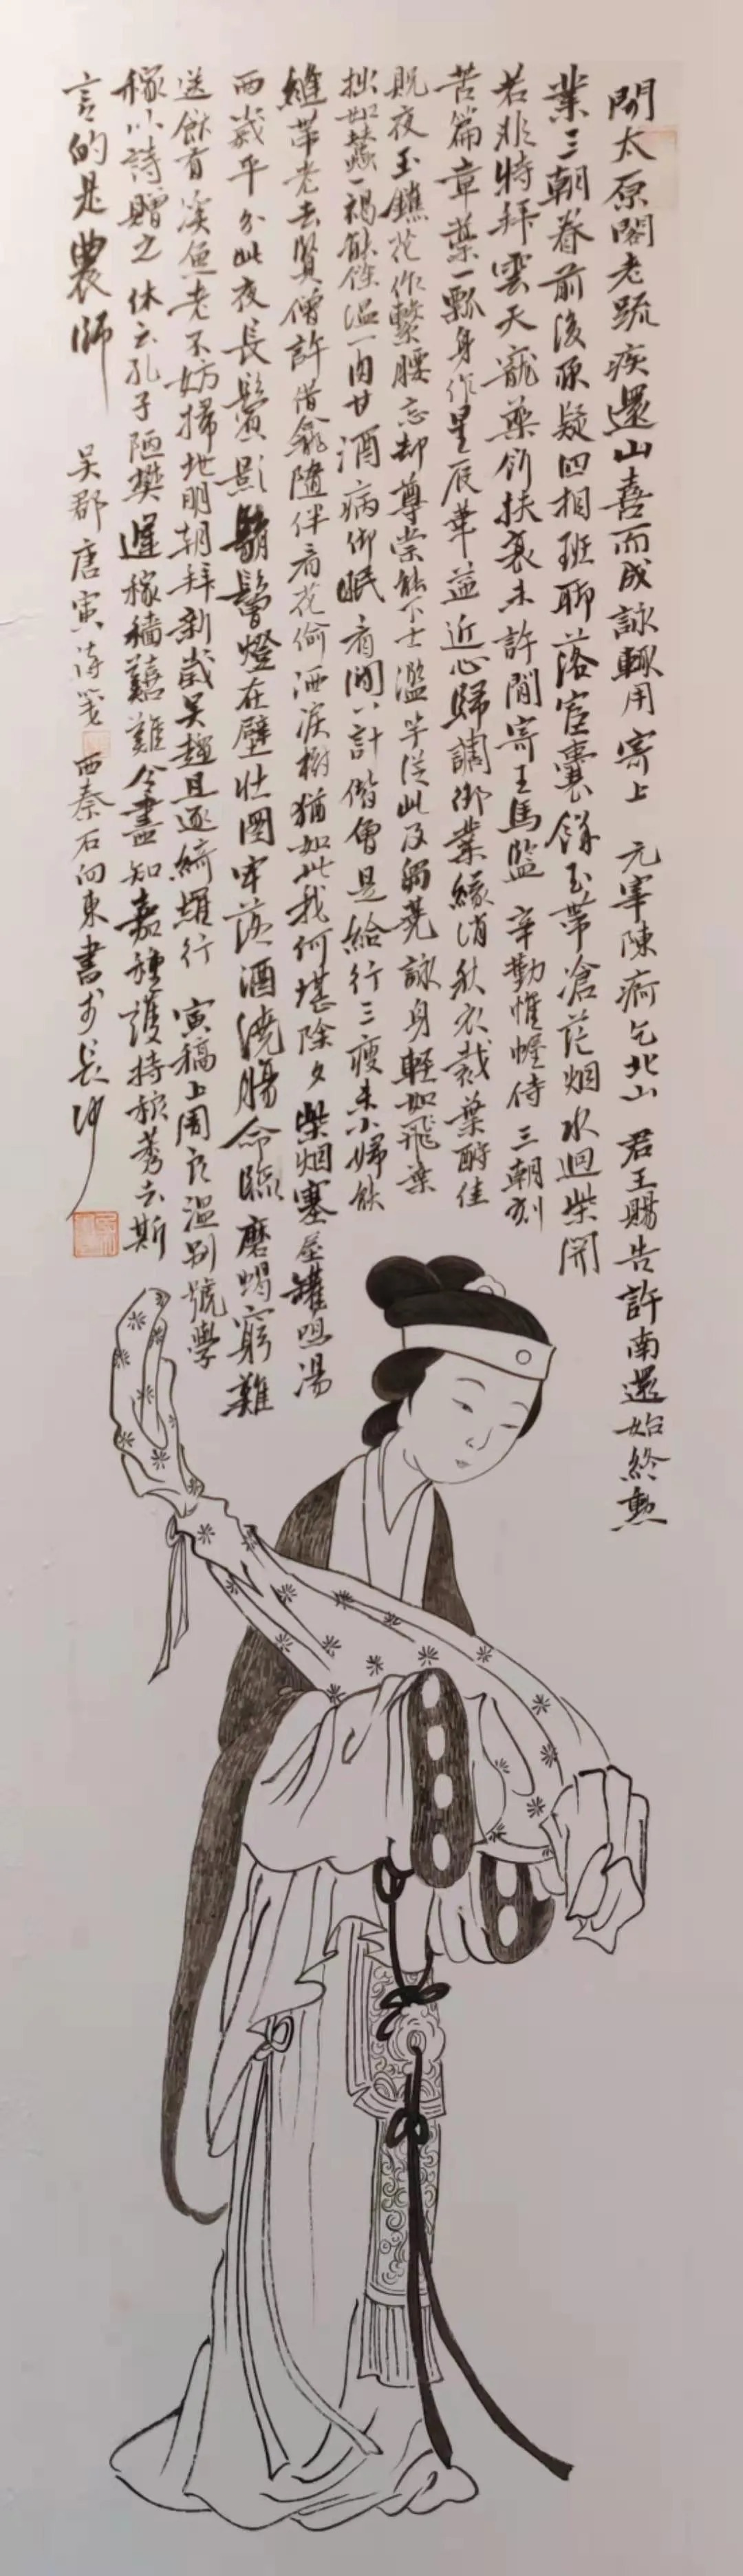 聞太原閣老疏疾還山喜而成詠輒用寄上 元宰陳痾乞北山 君王賜告許南還始終勲
業三朝眷前後丞疑四相班聊落宦囊餘玉帶滄茫烟水迴柴関
若非特拜雲天寵藥餌扶衰未許閒寄王馬監 辛勤惟幄侍三朝刻
苦篇章葉一瓢身作星辰華益近心歸調御業緣消秋衣裁葉酧佳
貺夜玉鑣花作繫腰忘却尊崇能下士濫竽從此及芻蕘詠身輕如飛葉
拙如蠶一褐餘温一肉甘酒病御眠看閒八計僧會是給行三瘦未小婦能
縫帶老去賢僧許借龕隨伴看花偷洒淚樹猶如此我何堪除夕柴烟塞屋罐鳴湯
両歲平分此夜長鬢影鬅鬙燈在壁壮圖牢落酒澆腸命臨磨蝎窮難
送餘有溪魚老不妨掃地明朝拜新歲吴趨且逐綺羅行 寅稿上周良温别號學
稼以詩贈之休云孔子陋樊遲稼穡囏難今盡知嘉種護持稂莠去斯
言的是農師 吴郡唐寅詩箋 西秦石向東書於長沙